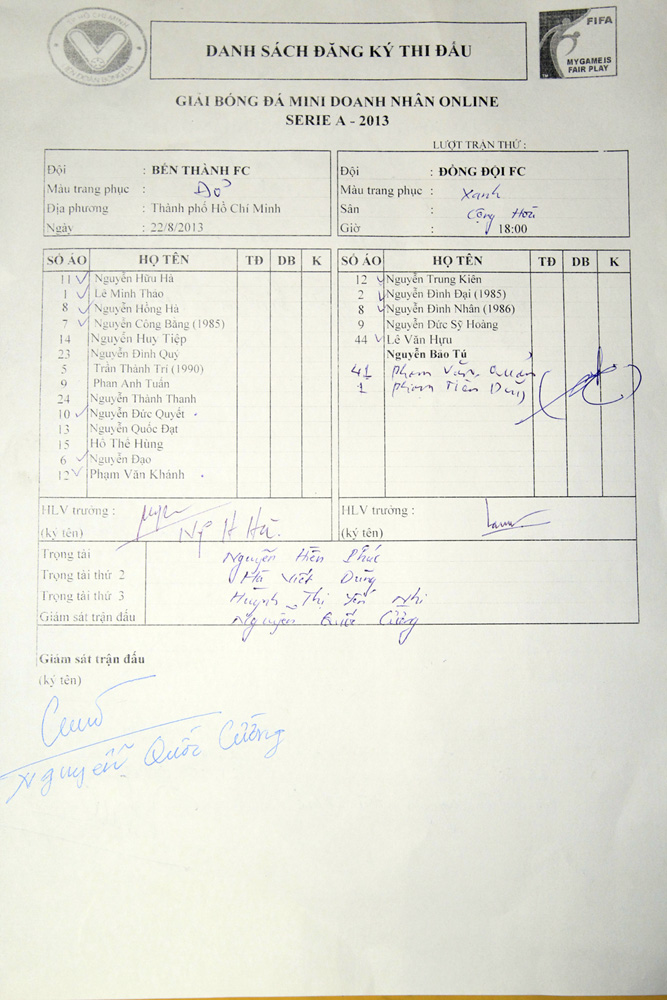 DANH SÁCH ĐĂNG KÝ THI ĐẤU
FIFA
MY GAME IS
FAIR PLAY
GIẢI BÓNG ĐÁ MINI DOANH NHÂN ONLINE
SERIE A - 2013
LƯỢT TRẬN THỨ :
Đội : BẾN THÀNH FC
Màu trang phục : Đỏ
Địa phương : Thành phố Hồ Chí Minh
Ngày : 22/8/2013
Đội : ĐỒNG ĐỘI FC
Màu trang phục : Xanh
Sân : Cộng Hòa
Giờ : 18:00
SỐ ÁO HỌ TÊN TĐ DB K
11 Nguyễn Hữu Hà
1 Lê Minh Thảo
8 Nguyễn Hồng Hà
7 Nguyễn Công Bằng (1985)
14 Nguyễn Huy Tiệp
23 Nguyễn Đình Quý
5 Trần Thành Trí (1990)
9 Phan Anh Tuấn
24 Nguyễn Thành Thanh
10 Nguyễn Đức Quyết
13 Nguyễn Quốc Đạt
15 Hồ Thế Hùng
6 Nguyễn Đạo
12 Phạm Văn Khánh
SỐ ÁO HỌ TÊN TĐ DB K
12 Nguyễn Trung Kiên
2 Nguyễn Đình Đại (1985)
8 Nguyễn Đình Nhân (1986)
9 Nguyễn Đức Sỹ Hoàng
44 Lê Văn Hựu
Nguyễn Bảo Tú
41 Phạm Văn Quân
1 Phạm Tiến Dũng
HLV trưởng :
(ký tên) Ng H Hà.
HLV trưởng :
(ký tên)
Trọng tài Nguyễn Hiền Phúc
Trọng tài thứ 2 Hà Việt Dũng
Trọng tài thứ 3 Huỳnh Thị Yến Nhi
Giám sát trận đấu Nguyễn Quốc Cường
Giám sát trận đấu
(ký tên)
Nguyễn Quốc Cường